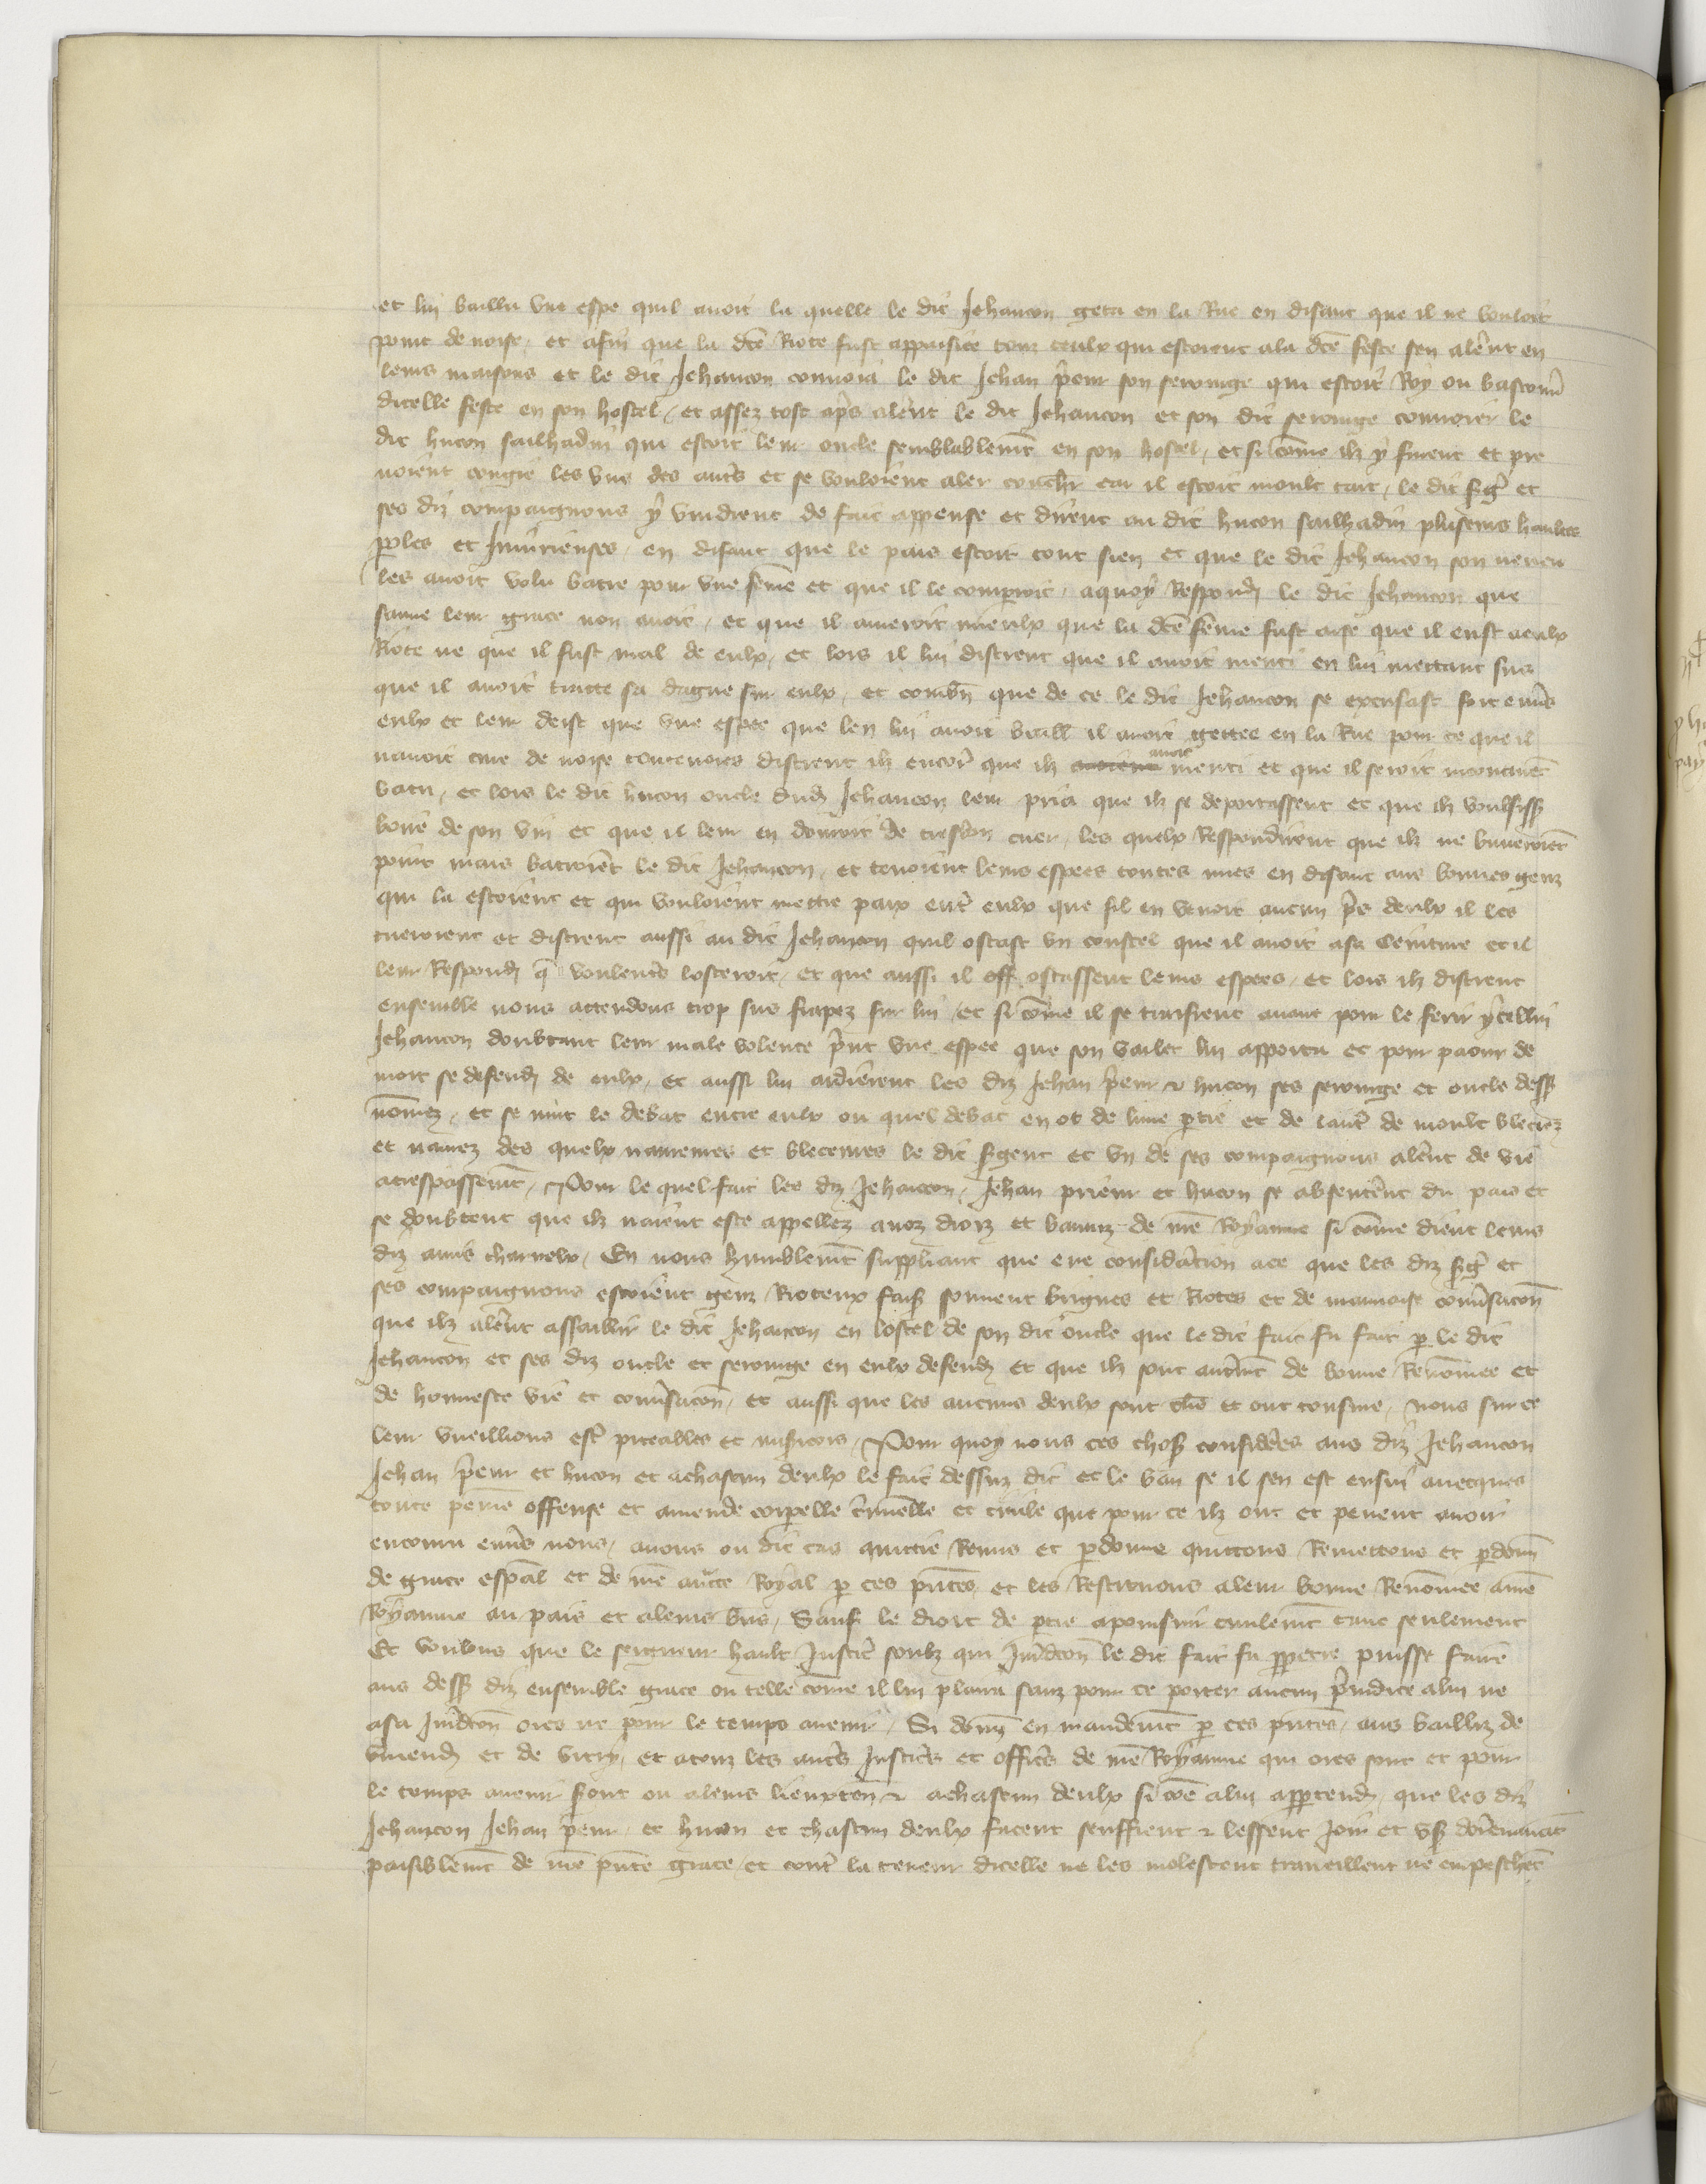 et lui bailla une espe quil avoit la quelle le dit Jehancon geta en la Rue en disant que il ne vouloit
point de noise, et afin que la dce Riote fust appaisiee touz ceulx qui estoient ala dce feste sen alerent en
leurs maisons et le dit Jehancon convoia le dit Jehan prieur son serourge qui estoit Roy ou
dicelle feste en son hostel, et assez tost apres alerent le dit Jehancon et son dit serourge convoier le
dit hucon sailhadin qui estoit leur oncle semblablement en son hostel, et si come ilz y furent et pre
noient congie les uns des autres et se vouloient aler couchr car il estoit moult tart, le dit Sgr et
ses diz compaignons y vindrent de fait appense et dirent au dit hucon sailhadin plusieurs haultes
poles et Injurienses, en disant que le pais estoit tout sien et que le dit Jehancon son neveu
les avoit volu batre pour une feme et que il le comparroit, aquoy Respondi le dit Jehancon que
sauve leur grace non avoit, et que il ameroit mieulx que la dce feme fust arse que il eust a eulx
Riote ne que il fust mal de eulx, et lors il lui distrent que il avoit menti en lui mettant sus
que il avoit traitte sa dague sur eulx, et combn que de ce le dit Jehancon se excusast fort envs
eulx et leur deist que une espee que len lui avoit baill il avoit gettee en la Rue pour ce que il
navoit cure de noise toutevoies distrent ilz encor que ilz avoit menti et que il seroit incontinet
batu, et lors le dit hucon oncle dud Jehancon leur pria que ilz se deportassent et que ilz voulsiss
boire de son vin et que il leur en donroit de tresbon cuer, les quelx Respondirent que ilz ne buveroiet
point mais batroiet le dit Jehancon, et tenoient leurs espees toutes nues en disant aus bonnes genz
qui la estoient et qui vouloient mettre paix entr eulx que sil en venoit aucun pres deulx il les
tueroient et distrent aussi au dit Jehancon quil ostast un coustel que il avoit asa ceinture et il
leur Respondi q voulentrs losteroit, et que aussi il off ostassent leurs espees, et lors ilz distrent
ensemble nous attendons trop sus frapez sur lui, et si come il se traisrent avant pour le ferir ycellui
Jehancon doubtant leur male volente print une espee que son varlet lui apporta et pour paour de
mort se defendi de eulx, et aussi lui aidierent les diz Jehan prieur & hucon ses serourge et oncle dess
nomez, et se mut le debat entre eulx ou quel debat en ot de lune ptie et de lautr de moult bleciez
et navrez des quelx navreures et bleceures le dit Sgent et un de ses compaignons alerent de vie
atrespassemet, Pour le quel fait les diz Jehancon, Jehan prieur et hucon se absenterent du pais et
se doubtent que ilz naient este appellez a noz droiz et banniz de nre Royaume si come dient leurs
diz amis charnelx, En nous humblemt suppliant que eue consideracion ace que les diz Sgr et
ses compaignons estoient genz Rioteux faiss souvent brigues et Riotes et de mauvaise convsacon
que ilz alerent assaillir le dit Jehancon en lostel de son dit oncle que le dit fait fu fait p le dit
Jehancon et ses diz oncle et serourge en eulx defend et que ilz sont autremt de bonne Renomee et
de honneste vie et convsacon, et aussi que les aucuns deulx sont clers et ont tonsure, nous sur ce
leur vueillions estr piteables et misicors, Pour quoy nous ces chos considerees aus diz Jehancon
Jehan prieur et hucon et achascun deulx le fait dessuz dit et le ban se il sen est ensui avecques
toute peine offense et amende corpelle crimielle et civile que pour ce ilz ont et pevent avoir
encouru envs nous, avons ou dit cas quittie Remis et pdonne quittons Remettons et pdonn
de grace espal et de nre auctte Royal p ces pntes et les Restituons aleur bonne Renomee a nre
Royaume au pais et aleurs bns, Sauf le droit de ptie apoursuir civilemt tant seulement
Et voulons que le seigneur hault Justicr soubz qui Juridcon le dit fait fu ppetre puisse faire
aus dess diz ensemble grace ou telle come il lui plaira sanz pour ce porter aucun prejudice alui ne
asa Juridcon ores ne pour le temps avenir, Si donns en mandemt p ces pntes, aus bailliz de
vmend et de vitry, et atouz les autrs Justicrs et officrs de nre Royaume qui ores sont et pour
le temps avenir sont ou aleurs lieuxten & achascun deulx si coe alui apptend, que les diz
Jehancon Jehan prieur, et hucon et chascun deulx facent seuffrent & lessent Joir et us doresenavat
paisiblemt de nre pnte grace, et contr la teneur dicelle ne les molestent traveillent ne empeschet